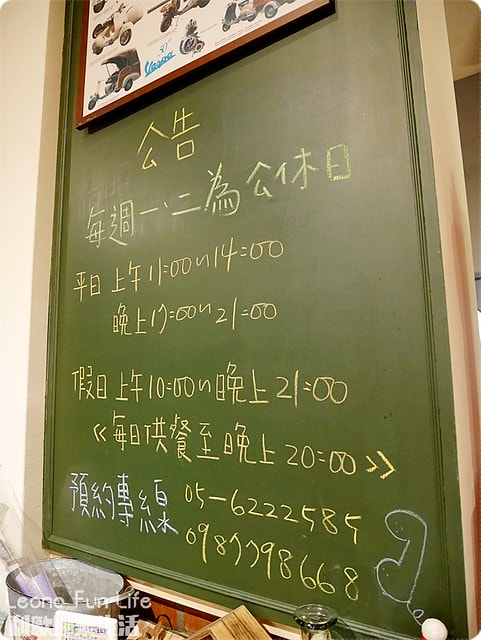 Vespa
公告
每週一、二為公休日
平日 上午11:00~14:00
晚上17:00~21:00
假日 上午10:00~晚上21:00
《每日供餐至晚上20:00》
預約專線 05-6222585
0987798668
Leono Fun Life